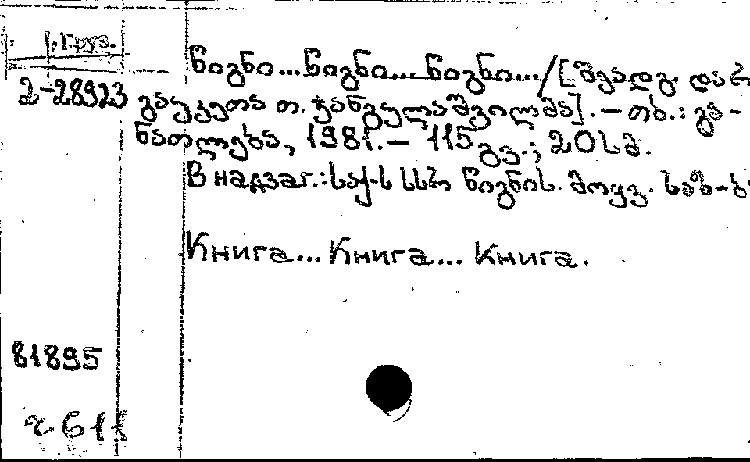 Груз.
წიგნი... წიგნი... წიგნი.../[შეადგ. და
2-28923 გააკეთა თ. ჯანგულაშვილმა]. – თბ.: გა-
ნათლება, 1981. – 115 გვ.; 20 სმ.
В надзаг.: საქ. სსრ წიგნის. მოყვ. საზ-ბ
Книга... Книга... Книга.
81895
611